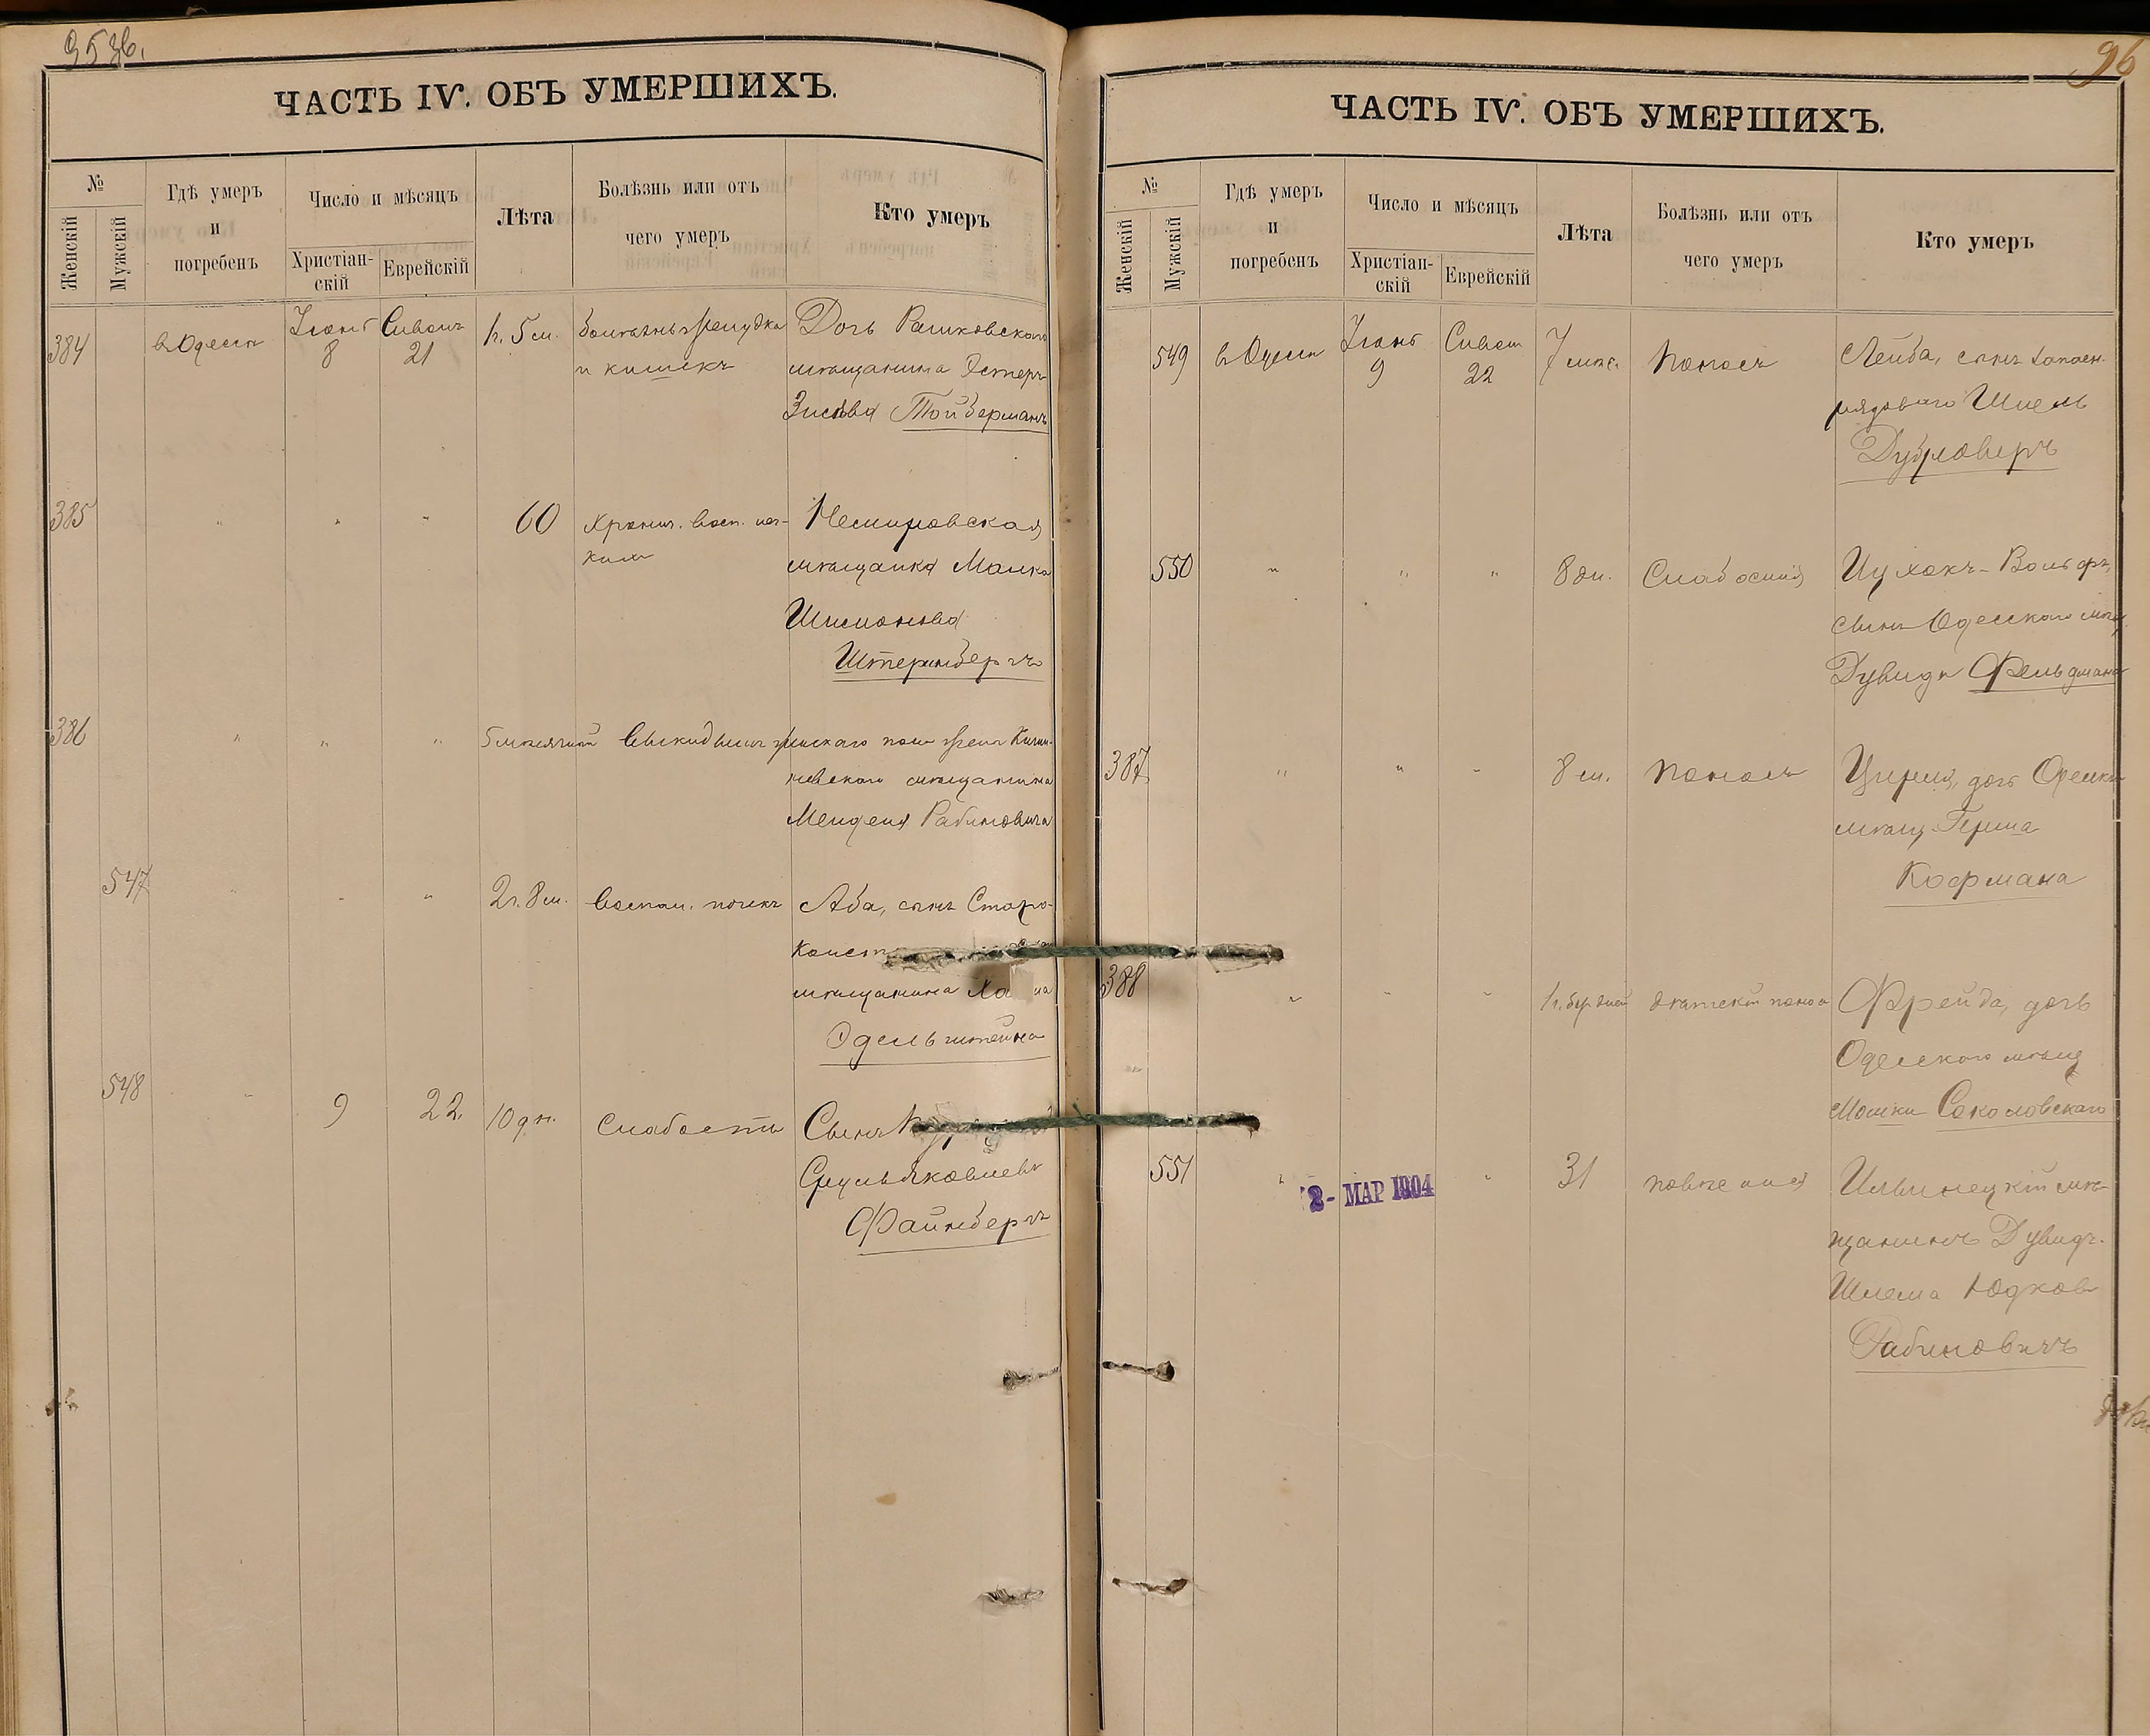 95 зв.
ЧАСТЬ IV. ОБЪ УМЕРШИХЪ.
№
Женскій
Мужскій
Гдѣ умеръ
и
погребенъ
Число и мѣсяцъ
Христіан-
скій
Еврейскій
Лѣта
Болѣзнь или отъ
чего умеръ
Кто умеръ
384 в Одессѣ Іюнь 8 Сиванъ 21 1 г. 5 м.
и кишекъ
Дочь Рашковскаго
мѣщанина Эстеръ
Тойберманъ
385 " " " 60 Хронич. восп.
Немировская
мѣщанка Малка
Шимонова
Штеринбергъ
386 " " " 5 мѣсячный выкидышъ женскаго пола
мѣщанина
Менделя Рабиновича
547 " " " 2 г. 8 м. воспал. почекъ Аба, сынъ Старо-
Конст
мѣщанина
Эдельштейна
548 " 9 22 10 дн. Слабость Сынъ
Сруль Яковлевъ
Файнбергъ
96
ЧАСТЬ IV. ОБЪ УМЕРШИХЪ.
№
Женскій
Мужскій
Гдѣ умеръ
и
погребенъ
Число и мѣсяцъ
Христіан-
скій
Еврейскій
Лѣта
Болѣзнь или отъ
чего умеръ
Кто умеръ
549 в Одессѣ Іюнь 9 Сиван 22 7 мѣс. Поносъ Лейба, сынъ
рядового Шмель
Дубровер
550 " " " 8 дн. Слабосилія Ицхокъ-Вольфъ,
сынъ Одесскаго мѣщ.
Дувида Фельдмана
387 " " " 8 м. Поносъ Цирля, дочь
мѣщ. Герша
Кофмана
388 " " " дѣтскій понос Фрейда, дочь
Одесскаго мѣщ.
Мошки Соколовскаго
551 " 2 - МАР 1904 " 31 повѣшенія Ильинецкій мѣ-
щанинъ Дувидъ-
Шлема Юдков
Рабиновичъ